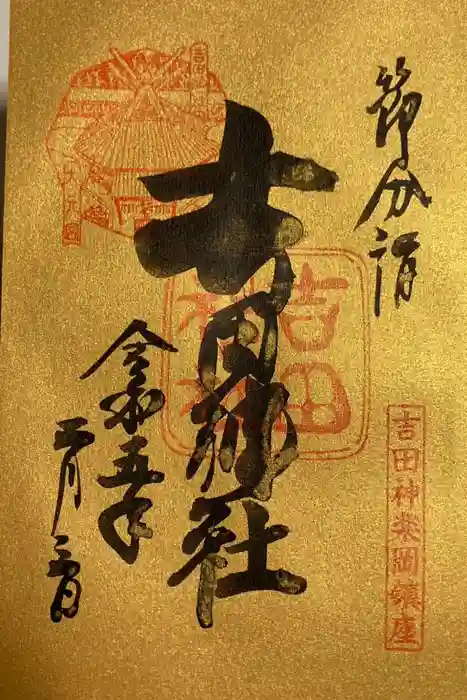 節分詣
吉田神楽岡鎮座
吉田神社
吉田神社
令和五年
二月三日
吉田